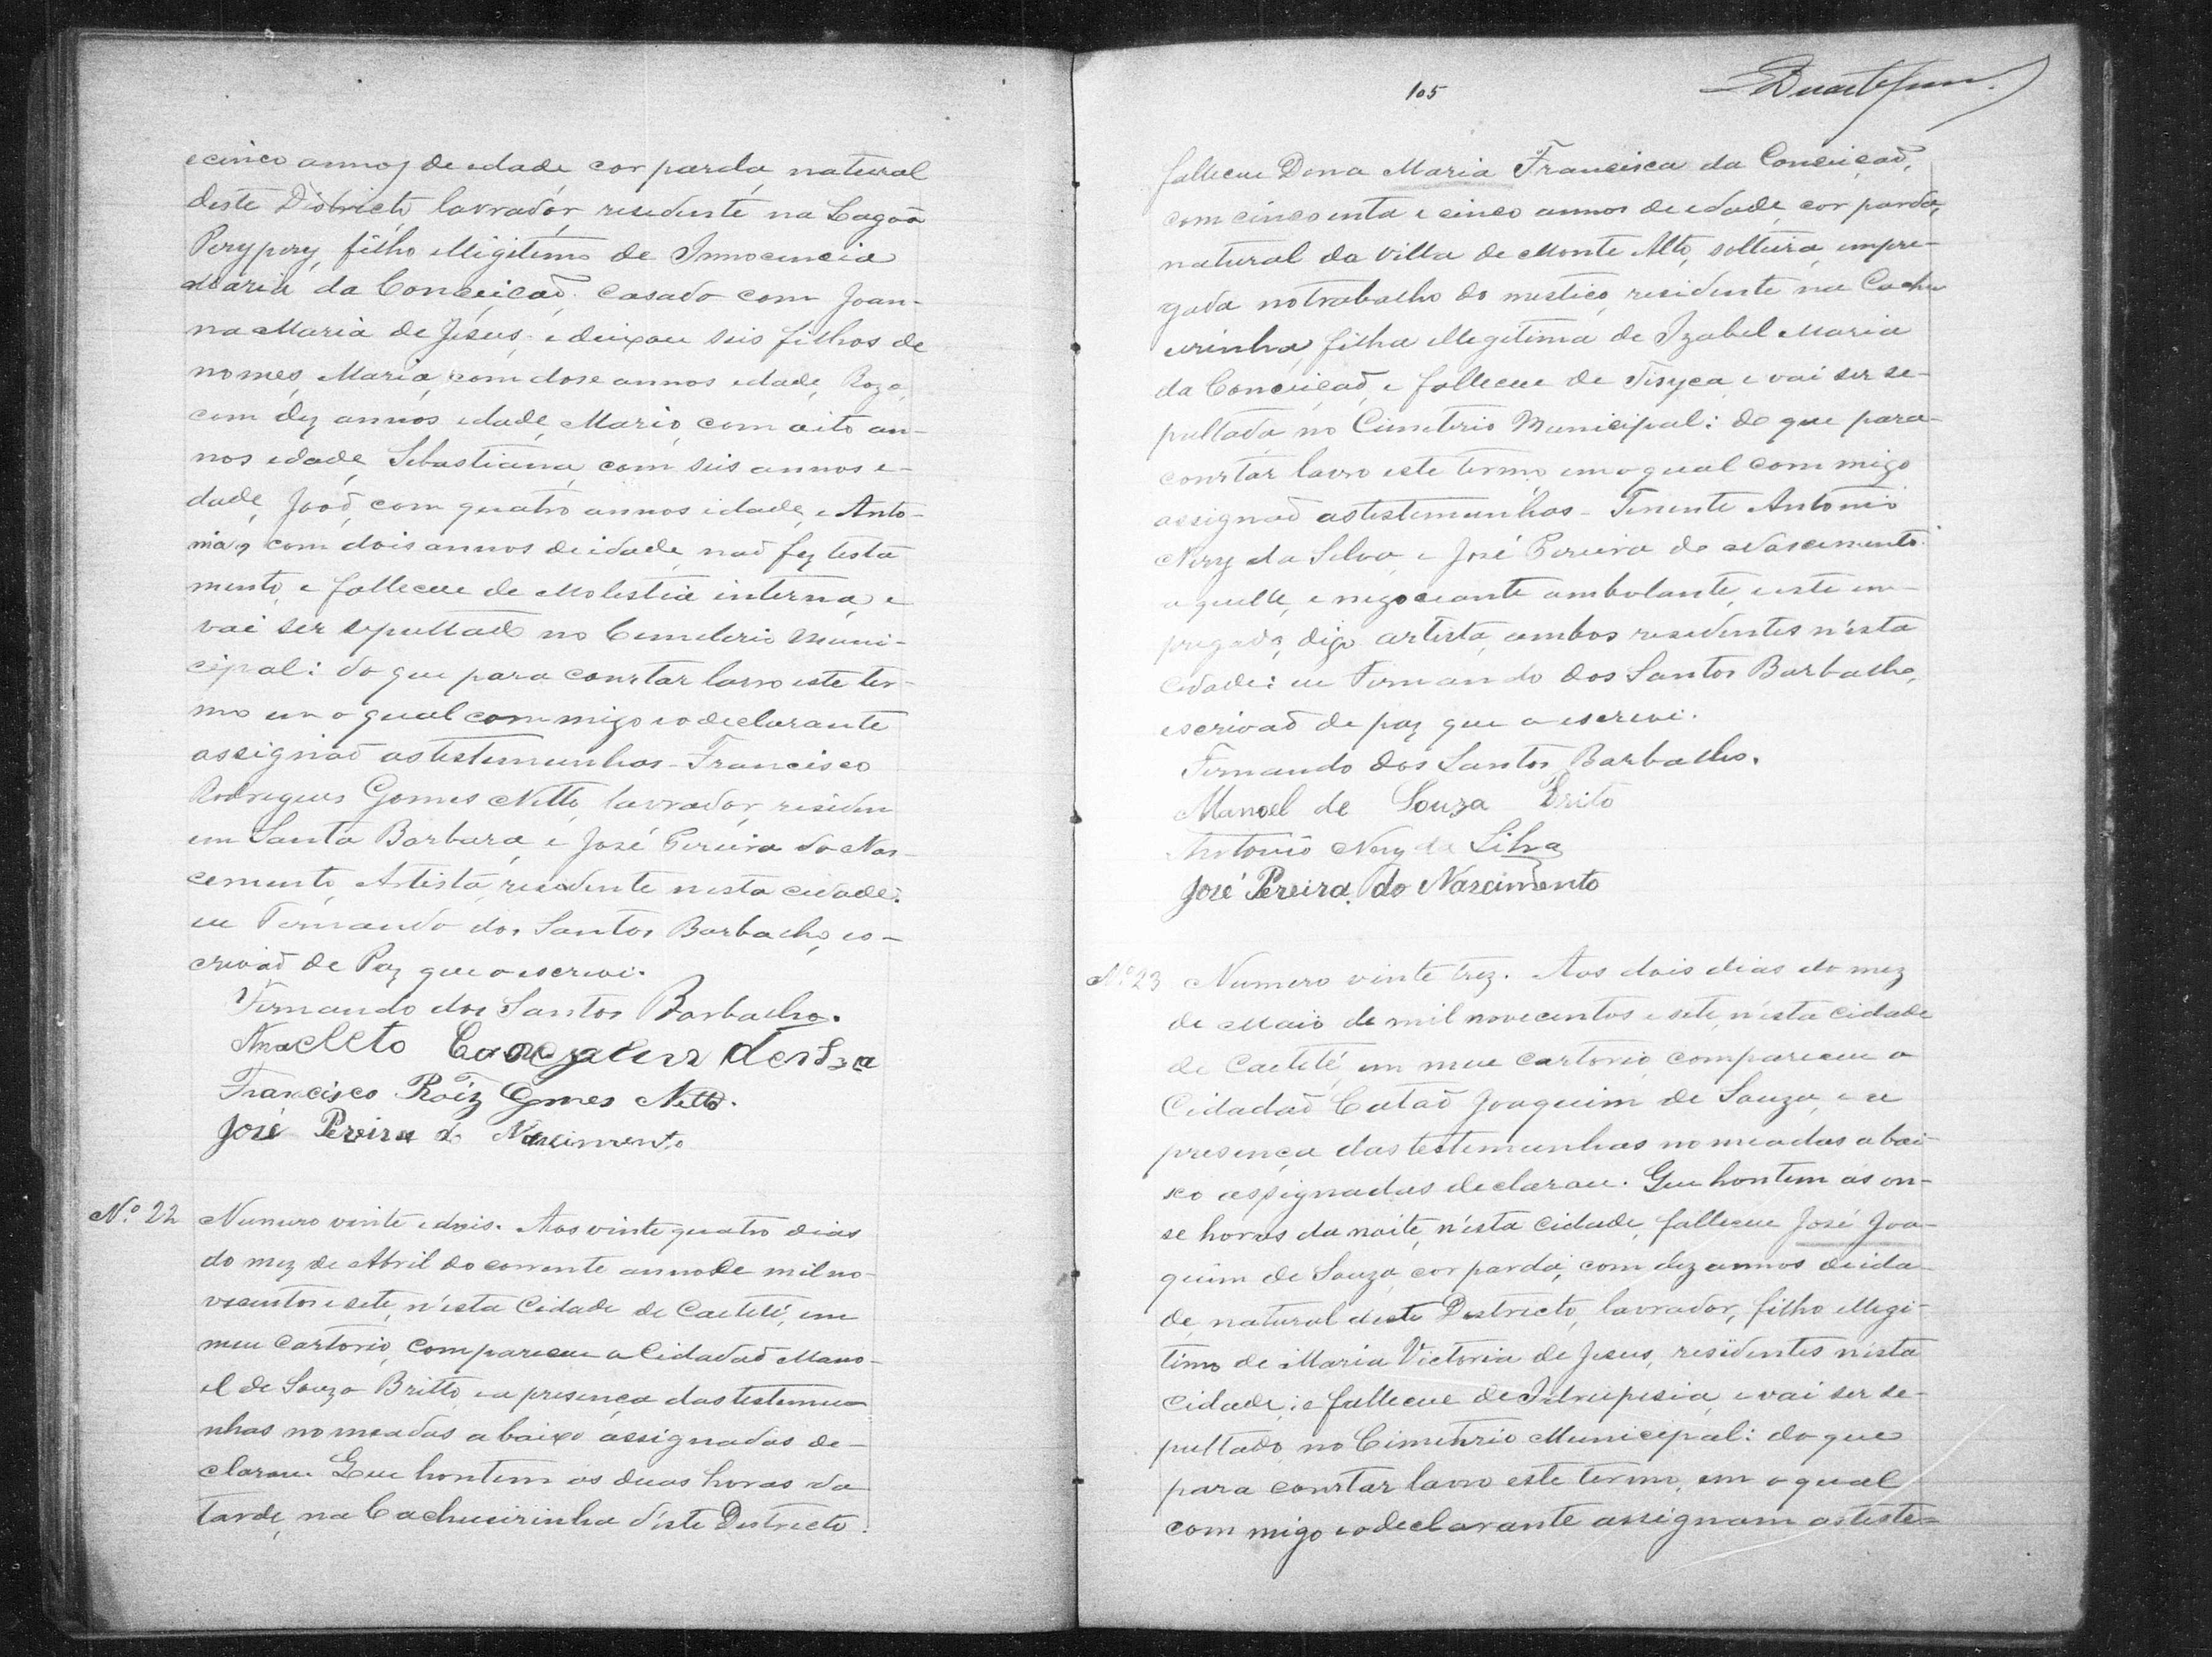 e cinco annos de edade cor parda, natural
deste Districto lavrador, residente na Lagôa
Perypery, filho illigitimo de Innocencia
Maria da Conceição; casado com Joan-
na Maria de Jesus; e deixou seis filhos de
nomes, Maria, com dose annos edade, Roza,
com dez annos edade, Maria, com oito an-
nos edade, Sebastiana, com seis annos e-
dade, João, com quatro annos idade, e Anto-
nia, com dois annos de idade, não fez testa
mento, e falleceu de Molestia interna, e
vai ser sepultado no Cemeterio Muni-
cipal: do que para constar lavro este ter-
mo em o qual commigo e o declarante
assignão as testemunhas - Francisco
Rodrigues Gomes Netto, lavrador, residen
em Santa Barbara, e José Pereira do Nas-
cemento, Artista, residente nesta cidade:
eu Fernando dos Santos Barbacho, es-
crivão de Paz que o escrevi.
Fernando dos Santos Barbacho.
Anacleto
Francisco Roiz Gomes Netto.
José Pereira do Nascimento
Nº 22 Numero vinte e dois. Aos vinte quatro dias
do mez de Abril do corrente anno de mil no-
vecentos e sete, n'esta Cidade de Caetité, em
meu Cartorio, compareceu o Cidadão Mano-
el de Souza Britto, e a presença das testemu
nhas nomeadas abaixo assignadas de-
clarou. Que hontem as duas horas da
tarde, na Cachueirinha d'este Destricto:
105
falleceu Dona Maria Francisca da Conceição,
com cincoenta e cinco annos de edade, cor parda,
natural da Villa de Monte Alto, solteira, empre-
gada no trabalho do mestiço, residente na Cachu
eirinha, filha illegitima de Izabel Maria
da Conceição, e falleceu de Tisyca, e vai ser se-
pultada no Cimeterio Municipal: do que para
constar lavro este termo, em o qual commigo
assignão as testemunhas - Tenente Antonio
Nery da Silva, e José Pereira do Nascemento
aquelle, e negociante ambolante, e este em-
pregado, digo artista, ambos residentes n'esta
Cidade: eu Fernando dos Santos Barbacho,
escrivão de paz que o escrevi.
Fernando dos Santos Barbacho.
Manoel de Souza Brito
Antonio Nery da Silva
José Pereira do Nascimento
Nº 23 Numero vinte trez. Aos dois dias do mez
de Maio de mil novecentos e sete, n'esta cidade
de Caetité, em meu cartorio, compareceu o
Cidadão Catão Joaquim de Souza, e a
presença das testemunhas nomeadas abai-
xo assignadas declarou. Que hontem as on-
se horas da noite, n'esta cidade, falleceu José Joa-
quim de Souza, cor parda, com dez annos de ida-
de, natural deste Destricto, lavrador, filho illegi-
timo de Maria Victoria de Jesus, residentes nesta
cidade; e falleceu de, e vai ser se-
pultado no Cimeterio Municipal: do que
para constar lavro este termo, em o qual
commigo e o declarante assignam as teste=